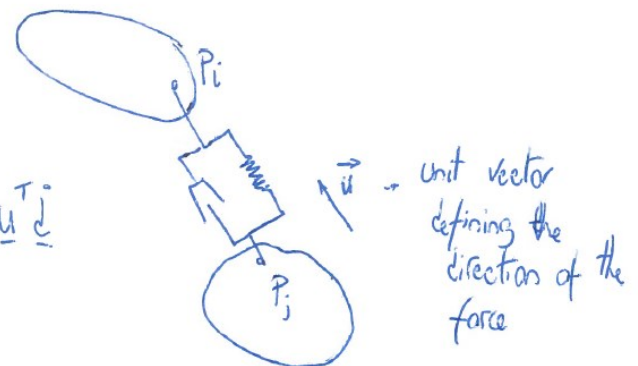 Pi
u⃗ → unit vector
defining the
direction of the
force
u̲ᵀ ḋ̲
Pj